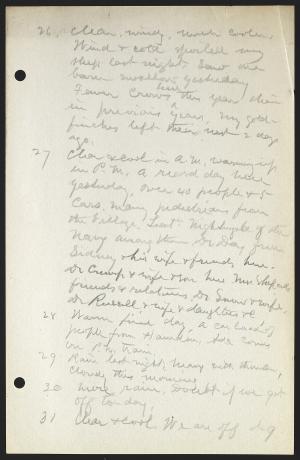 26, Clear, windy, much cooler
Wind & cold spoiled my
sleep last night. Saw one
barn swallow yesterday
here
Fewer crows this year than
in previous years, my gold-
finches left their nest 2 days
ago.
27 Clear & cool in A.M. warming up
in P.M. A record day here
yesterday, over 40 people & 5
Cars. Many pedestrians from
the Village. Lieut. Nightingale of the
Navy among them. Dr Day from
Sidney & his wife & friends here.
Dr Crump & wife & son here
friends & relatives, Dr & wife,
Dr Russell & wife & daughter
28 Warm fine day, a car load of
people from Hamden,
on P.M. train.
29 Rain last night, heavy with thunder,
cloudy this morning.
30 more rain. Doubt if we get
off today.
31 Clear & cool. We are off